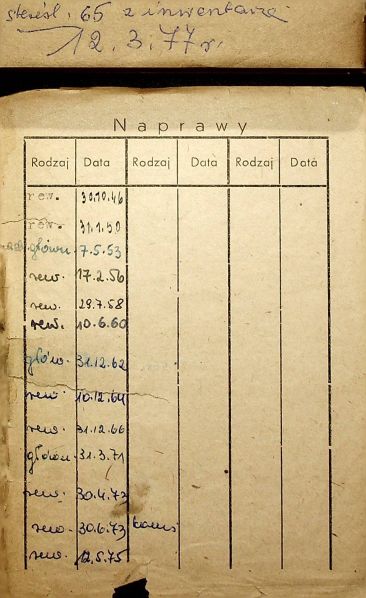 skreśl. 65 z inwentarza
12.3.77 r.
Naprawy
Rodzaj Data Rodzaj Data Rodzaj Data
rew. 30.10.46
rew. 31.1.50
główn. 7.5.53
rew. 17.2.56
rew. 29.7.58
rew. 10.6.60
główn. 31.12.62
rew. 10.12.64
rew. 31.12.66
główn. 31.3.71
rew. 30.4.73
rew. 30.6.73
rew. 12.5.75